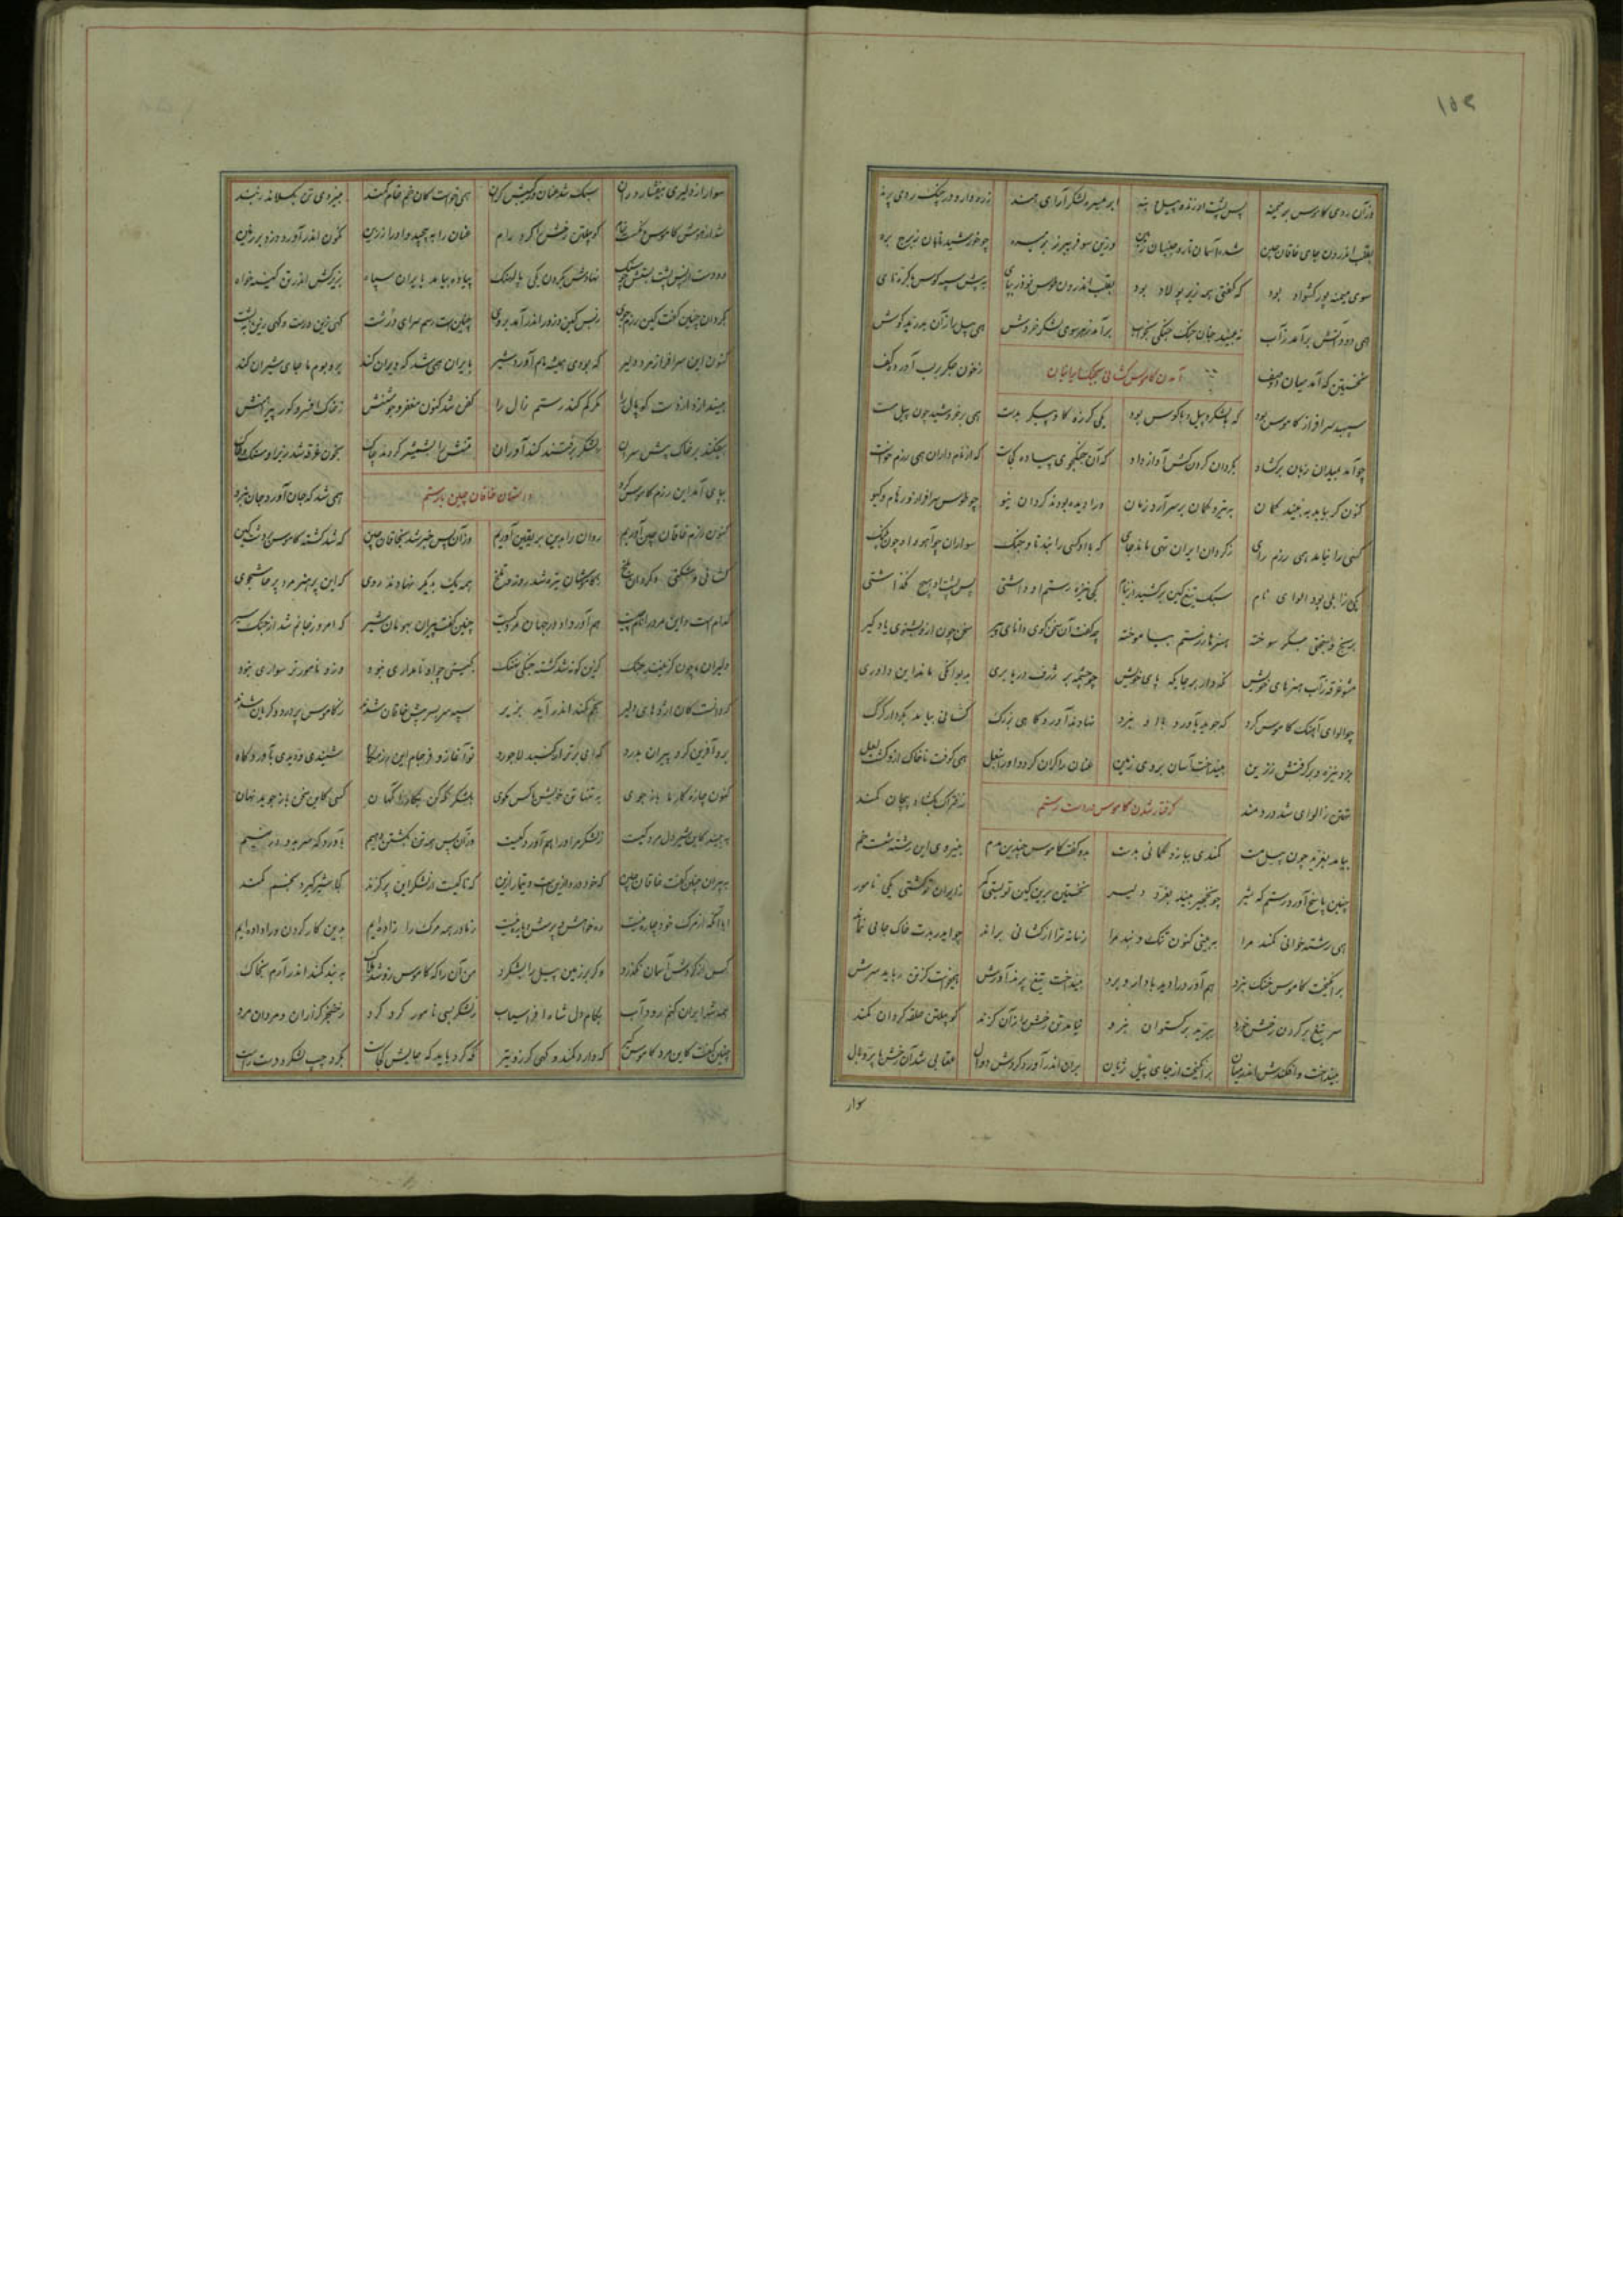 ۱۵۲
وزان روی کاموس بر میمنه پس پشت او ژنده پیل و بنه ابر میسره لشکر آرای هند زره دار و در چنگ رومی پرند
بقلب اندرون جای خاقان چین شده آسمان تار و جنبان زمین وزین سو فریبرز بر میسره چو خورشید تابان ز برج بره
سوی میمنه پور کشواد بود که گفتی همه زیر پولاد بود بقلب اندرون طوس نوذر بپای به پیش سپه کوس با کره نای
همی دود آتش برآمد ز آب نه بیند چنان جنگ جنگی بخواب برآمد ز هر سوی لشکر خروش همی پیل را زان بدرید گوش
نخستین که آمد میان دو صف ز خون جگر بر لب آورد کف
آمدن کاموس کشانی بجنگ ایرانیان
سپهبد سرافراز کاموس بود که با لشکر و پیل و با کوس بود یکی گرزه گاو پیکر بدست همی بر خروشید چون پیل مست
چو آمد بمیدان زبان برگشاد بگردان گردنکش آواز داد که آن جنگجوی پیاده کجاست که از نامداران همی رزم خواست
کنون گر بیاید به بیند کمان به تیر و کمان بر سر آرد زمان ورا دیده بودند گردان نیو چو طوس سرافراز و رهام و گیو
کسی را نیامد همی رزم رای ز گردان ایران تهی ماند جای که با او کسی را نبد تاو جنگ سواران چو آهو و او چون پلنگ
یکی زابلی بود الوای نام سبک تیغ کین برکشید از نیام کجی نیزه رستم او داشتی پس پشت او هیچ نگذاشتی
برنج و بسختی جگر سوخته هنرها ز رستم بیاموخته چه گفت آن سخن گوی دانای پیر سخن چون ازو بشنوی یاد گیر
مشو غره ز آب هنرهای خویش نگه دار بر جایگه پای خویش چو چشمه بر ژرف دریا بری به دیوانگی ماند این داوری
چو الوای آهنگ کاموس کرد که جوید بآورد با او نبرد نهادند آوردگاهی بزرگ کشانی بیامد بکردار گرگ
بزد نیزه و برگرفتش ز زین بینداخت آسان بروی زمین عنان را گران کرد و او را بنعل همی کوفت تا خاک ازو گشت لعل
تهمتن ز الوای شد دردمند ز فتراک بگشاد پیچان کمند
گرفتار شدن کاموس در دست رستم
بیامد بغرید چون پیل مست کمندی ببازو کمانی بدست بدو گفت کاموس چندین مدم به نیروی این رشته شست خم
چنین پاسخ آورد رستم که شیر چو نخجیر بیند بغرد دلیر نخستین برین کین تو بستی کمر ز ایران تو کشتی یکی نامور
همی رشته خوانی کمند مرا به بینی کنون تنگ و بند مرا زمانه ترا از کشانی براند چو ایدر بدت خاک جایی نماند
برانگیخت کاموس خنگ نبرد هم آورد را دید با دار و برد بینداخت تیغ پرند آورش همیخواست کز تن رباید سرش
سر تیغ بر گردن رخش خورد ببرید بر گستوان نبرد نیامد تن رخش را زان گزند گو پیلتن حلقه کردان کمند
بینداخت و افکندش اندر میان برانگیخت از جای پیل ژیان بران اندر آورد و کردش دوال عقابی شد آن رخش با پر و بال
سوار
سوار از دلیری بیفشارد ران سبک شد عنان و رکیبش گران همی خواست کان خم خام کمند به نیروی تن بگسلاند ز بند
شد از هوش کاموس و نگسست خام گو پیلتن رخش را کرد رام عنان را به پیچید و او را ز زین نگون اندر آورد و زد بر زمین
دو دست از پس پشت بستش چو سنگ نهادش بگردن یکی پالهنگ پیاده بیامد به ایران سپاه بزیر کش اندر تن کینه خواه
بگردان چنین گفت کین رزم جوی ز بس کین و زور اندر آمد بروی چنین است رسم سرای درشت گهی زین درست و گهی زین به پشت
کنون این سرافراز مرد دلیر که بودی همیشه هم آورد شیر بایران همی شد که ویران کند بر و بوم ما جای شیران کند
نیندازد از دست گوپال را مگر گم کند رستم زال را کفن شد کنون مغفر و جوشنش ز خاک افسر و گور پیراهنش
بیفکند بر خاک پیش سران ز لشکر برفتند کندآوران تنش را بشمشیر کردند چاک بخون غرقه شد زیر او سنگ و خاک
بپای آمد این رزم کاموس گرد همی شد که جان آورد جان ببرد
داستان خاقان چین با رستم
کنون رزم خاقان چین آوریم روان را بدین بر یقین آوریم وزان پس خبر شد بخاقان چین که شد کشته کاموس بر دشت کین
کشانی و شکنی و گردان بلخ ز کاموسشان تیره شد روز و تلخ همه یک بدیگر نهادند روی که این پر هنر مرد پرخاشجوی
کدامست و این مرد را نام چیست هم آورد او در جهان مرد کیست چنین گفت پیران بهومان شیر که امروز جانم شد از جنگ سیر
دلیران ما چون گزینند جنگ کزین گونه شد کشته جنگی پلنگ بگیتی چو او نامداری نبود وزو نامورتر سواری نبود
سپه سر بسر پیش خاقان شدند ز کاموس با درد و گریان شدند
برو آفرین کرد پیران بدرد که ای برتر از گنبد لاجورد تو آغاز و فرجام این رزمگاه شنیدی و دیدی بآوردگاه
کنون چاره کار ما باز جوی به تنها تن خویش با کس مگوی بلشکر نگه کن ز کارآگهان کسی کاین سخن باز جوید نهان
به بیند که این شیردل مرد کیست ز لشکر مر او را هم آورد کیست وزان پس همه تن بکشتن دهیم بآوردگه سر بسر بر نهیم
به پیران چنین گفت خاقان چین که خود درد ازینست و تیمار ازین که تا کیست از لشکر این پر گزند کجا شیر گیرد بخم کمند
ابا آنکه از مرگ خود چاره نیست ره خواهش و پرسش و یاره نیست ز مادر همه مرگ را زاده‌ایم بدین کار گردن ورا داده‌ایم
کس از گردش آسمان نگذرد و گر بر زمین پیل را بشکرد من آن را که کاموس ازو شد هلاک به بند کمند اندر آرم بخاک
همه شهر ایران کنم رود آب بکام دل شاه افراسیاب ز لشکر بسی نامور گرد کرد ز خنجر گزاران و مردان مرد
چنین گفت کاین مرد کاموس گیر که دارد کمند و کهی گرز و تیر نگه کرد باید که جایش کجاست بگرد چپ لشکر و دست راست